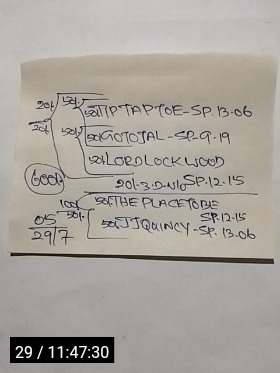 20/- 50/- 50/- TIPTAPTOE-SP.13.06
20/- 50/- 50/- GOTOTAL-SP-9.19
50/- LORDLOCKWOOD
600/- 20/-3.D.N/O SP.12.15
10/- 50/- THEPLACETOBE
SP.12.15
05 50/- 50/- JJQUINCY-SP.13.06
29/7
29 / 11:47:30